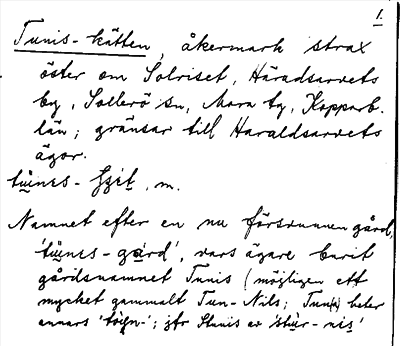 1.
Tunis-kätten, åkermark strax
öster om Solriset, Häradsarvets
by, Sollerö sn, Mora tg, Kopparb.
län; gränsar till Haraldsarvets
ägor.
m.
Namnet efter en nu försvunnen gård,
'tùnss-gård', vars ägare burit
gårdsnamnet Tunis (möjligen ett
mycket gammalt Tun-Nils; Tun(n) heter
annars jfr Stunis av 'stùr-nis'